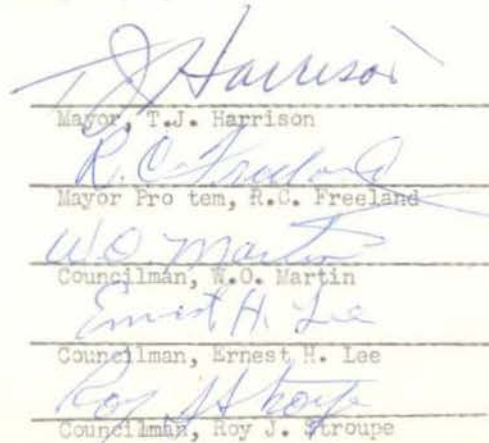 T J Harrison
Mayor, T.J. Harrison
R. C. Freeland
Mayor Pro tem, R.C. Freeland
W.O. Martin
Councilman, W.O. Martin
Ernest H. Lee
Councilman, Ernest H. Lee
Roy J Stroupe
Councilman, Roy J. Stroupe